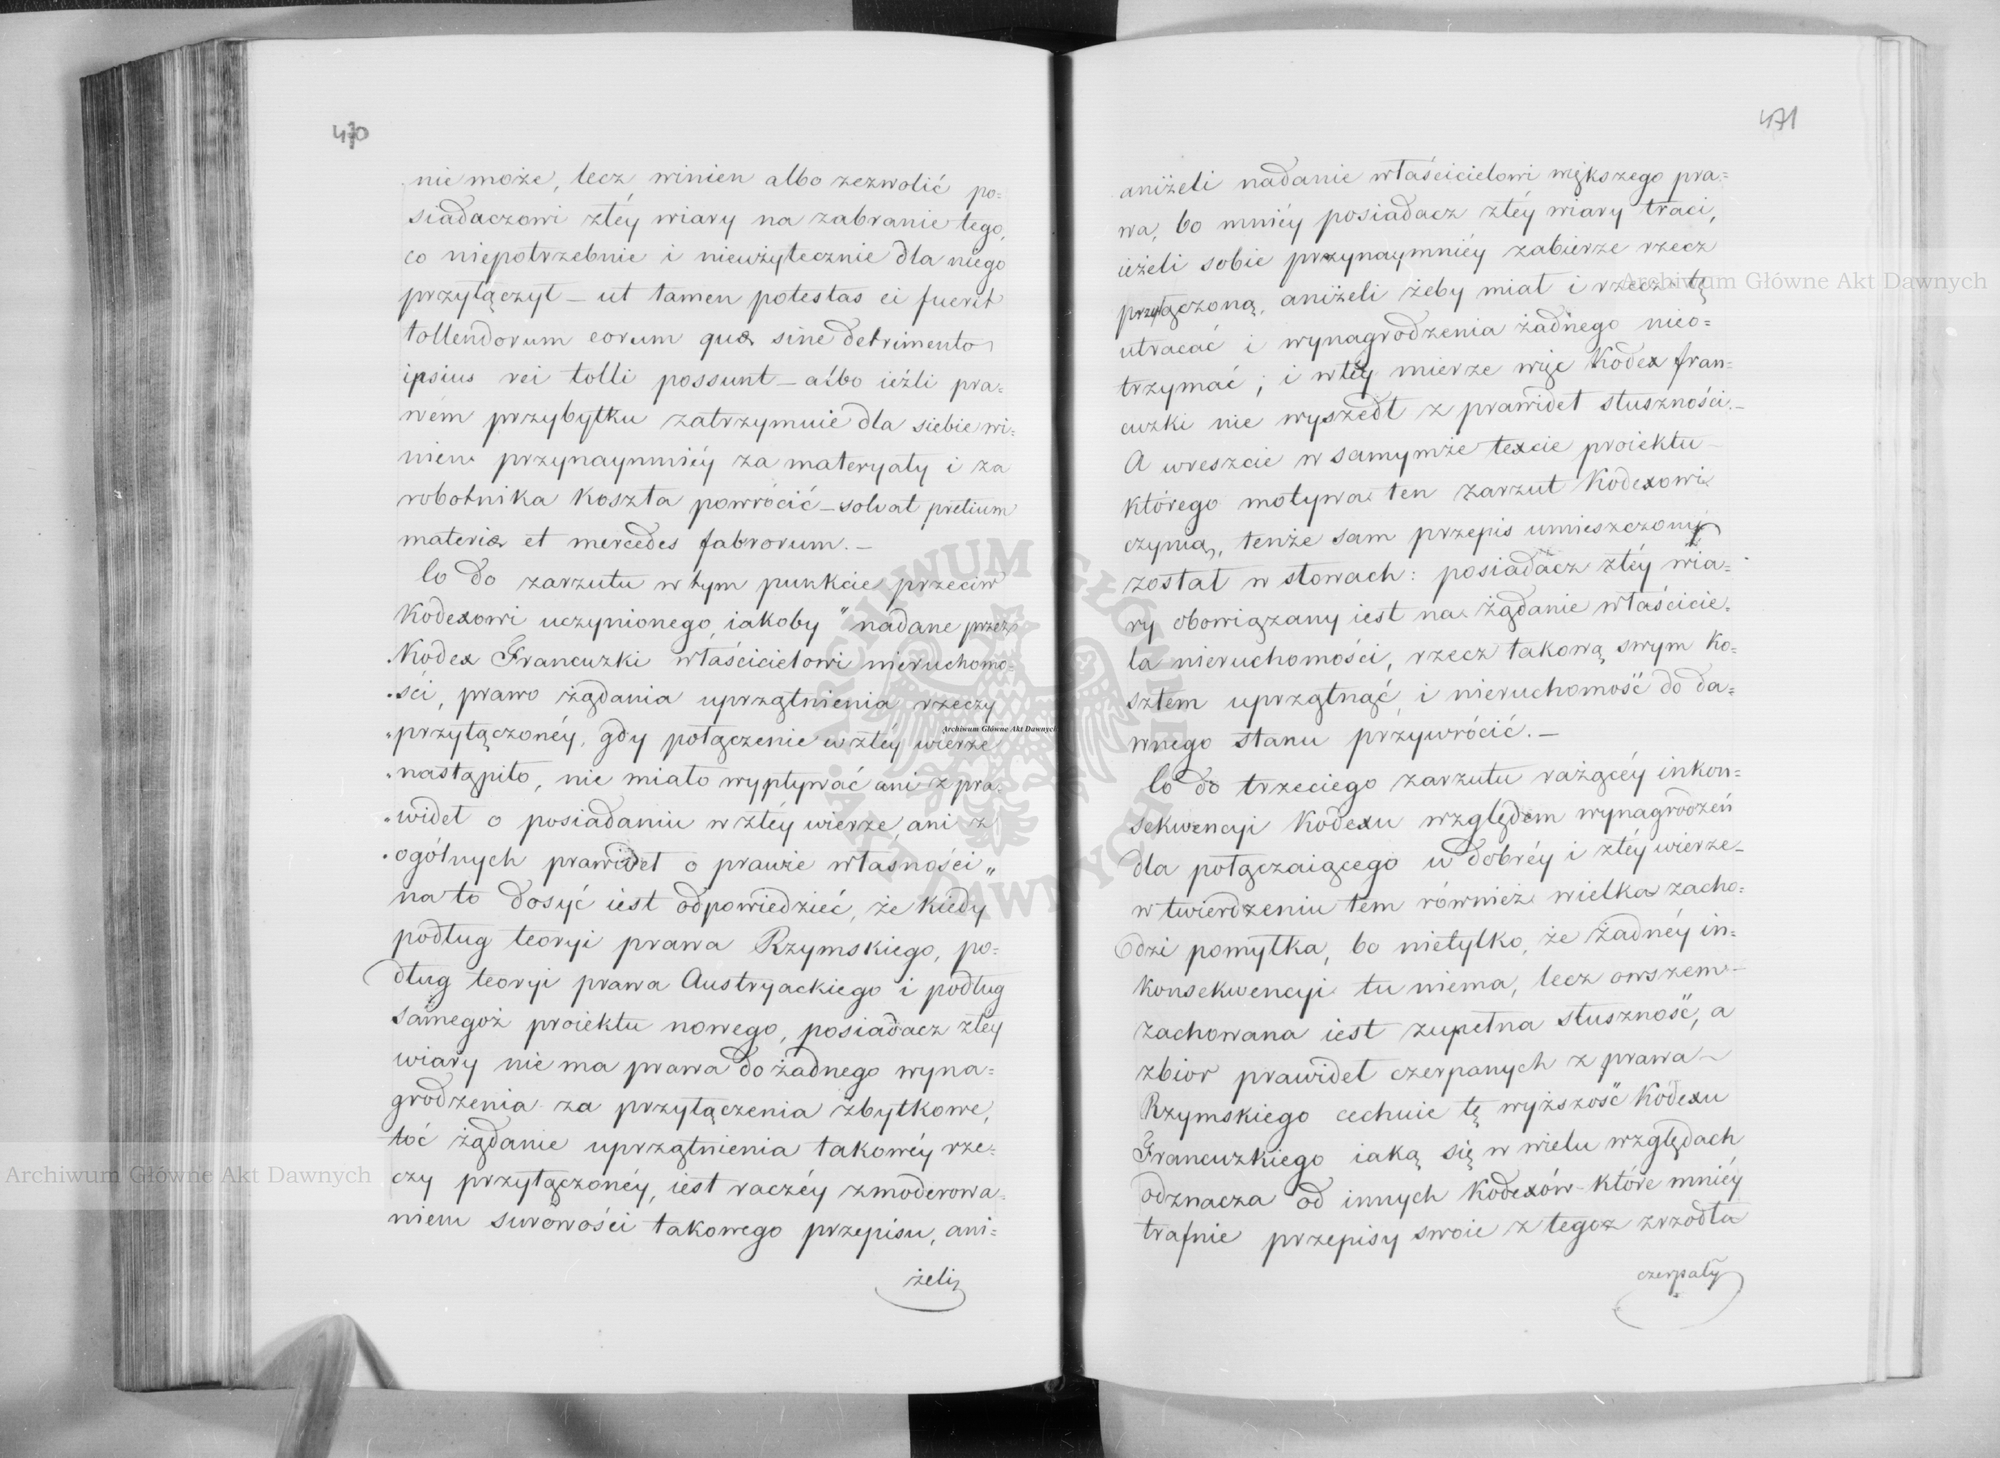 470
nie może, lecz winien albo zezwolić po=
siadaczowi złéy wiary na zabranie tego,
co niepotrzebnie i nieużytecznie dla niego
przyłączył – ut tamen potestas ei fuerit
tollendorum eorum quæ sine detrimento
ipsius rei tolli possunt – albo ieżli pra=
wem przybytku zatrzymuie dla siebie wi=
nien przynaymniéy za materyały i za
robotnika koszta powrócić – solvat pretium
materiæ et mercedes fabrorum. –
Co do zarzutu w tym punkcie przeciw
Kodexowi uczynionego, iakoby "nadane przez
"Kodex Francuzki właścicielowi nieruchomo=
"ści, prawo żądania uprzątnienia rzeczy
"przyłączonéy, gdy połączenie w złéy wierze
"nastąpiło, nie miało wypływać ani z pra=
"wideł o posiadaniu w złéy wierze, ani z
"ogólnych prawideł o prawie własności„
na to dosyć iest odpowiedzieć, że kiedy
podług teoryi prawa Rzymskiego, po=
dług teoryi prawa Austryackiego i podług
samegoż proiektu nowego, posiadacz złéy
wiary nie ma prawa do żadnego wyna=
grodzenia za przyłączenia zbytkowe,
toć żądanie uprzątnienia takowéy rze=
czy przyłączonéy, iest raczéy zmoderowa=
niem surowości takowego przepisu, ani=
żeli
471
aniżeli nadanie właścicielowi większego pra=
wa, bo mniéy posiadacz złéy wiary traci,
ieżeli sobie przynaymniéy zabierze rzecz
przyłączoną, aniżeli żeby miał i rzecz tę
utracać i wynagrodzenia żadnego nieo=
trzymać; i w téy mierze więc Kodex fran=
cuzki nie wyszedł z prawideł słuszności. –
A wreszcie w samymże texcie proiektu –
którego motywa ten zarzut Kodexowi
czynią, tenże sam przepis umieszczony
został w słowach: posiadacz złéy wia=
ry obowiązany iest na żądanie właścicie=
la nieruchomości, rzecz takową swym ko=
sztem uprzątnąć i nieruchomość do da=
wnego stanu przywrócić. –
Co do trzeciego zarzutu rażącéy inkon=
sekwencyi Kodexu względem wynagrodzeń
dla połączaiącego w dobréy i złéy wierze –
w twierdzeniu tem również wielka zacho=
dzi pomyłka, bo nietylko, że żadnéy in=
konsekwencyi tu niema, lecz owszem –
zachowana iest zupełna słuszność, a
zbior prawideł czerpanych z prawa –
Rzymskiego cechuie tę wyższość Kodexu
Francuzkiego iaką się w wielu względach
odznacza od innych Kodexów – które mniéy
trafnie przepisy swoie z tegoż zrzodła
czerpały
Archiwum Główne Akt Dawnych
Archiwum Główne Akt Dawnych
Archiwum Główne Akt Dawnych
ARCHIWUM GŁÓWNE AKT DAWNYCH